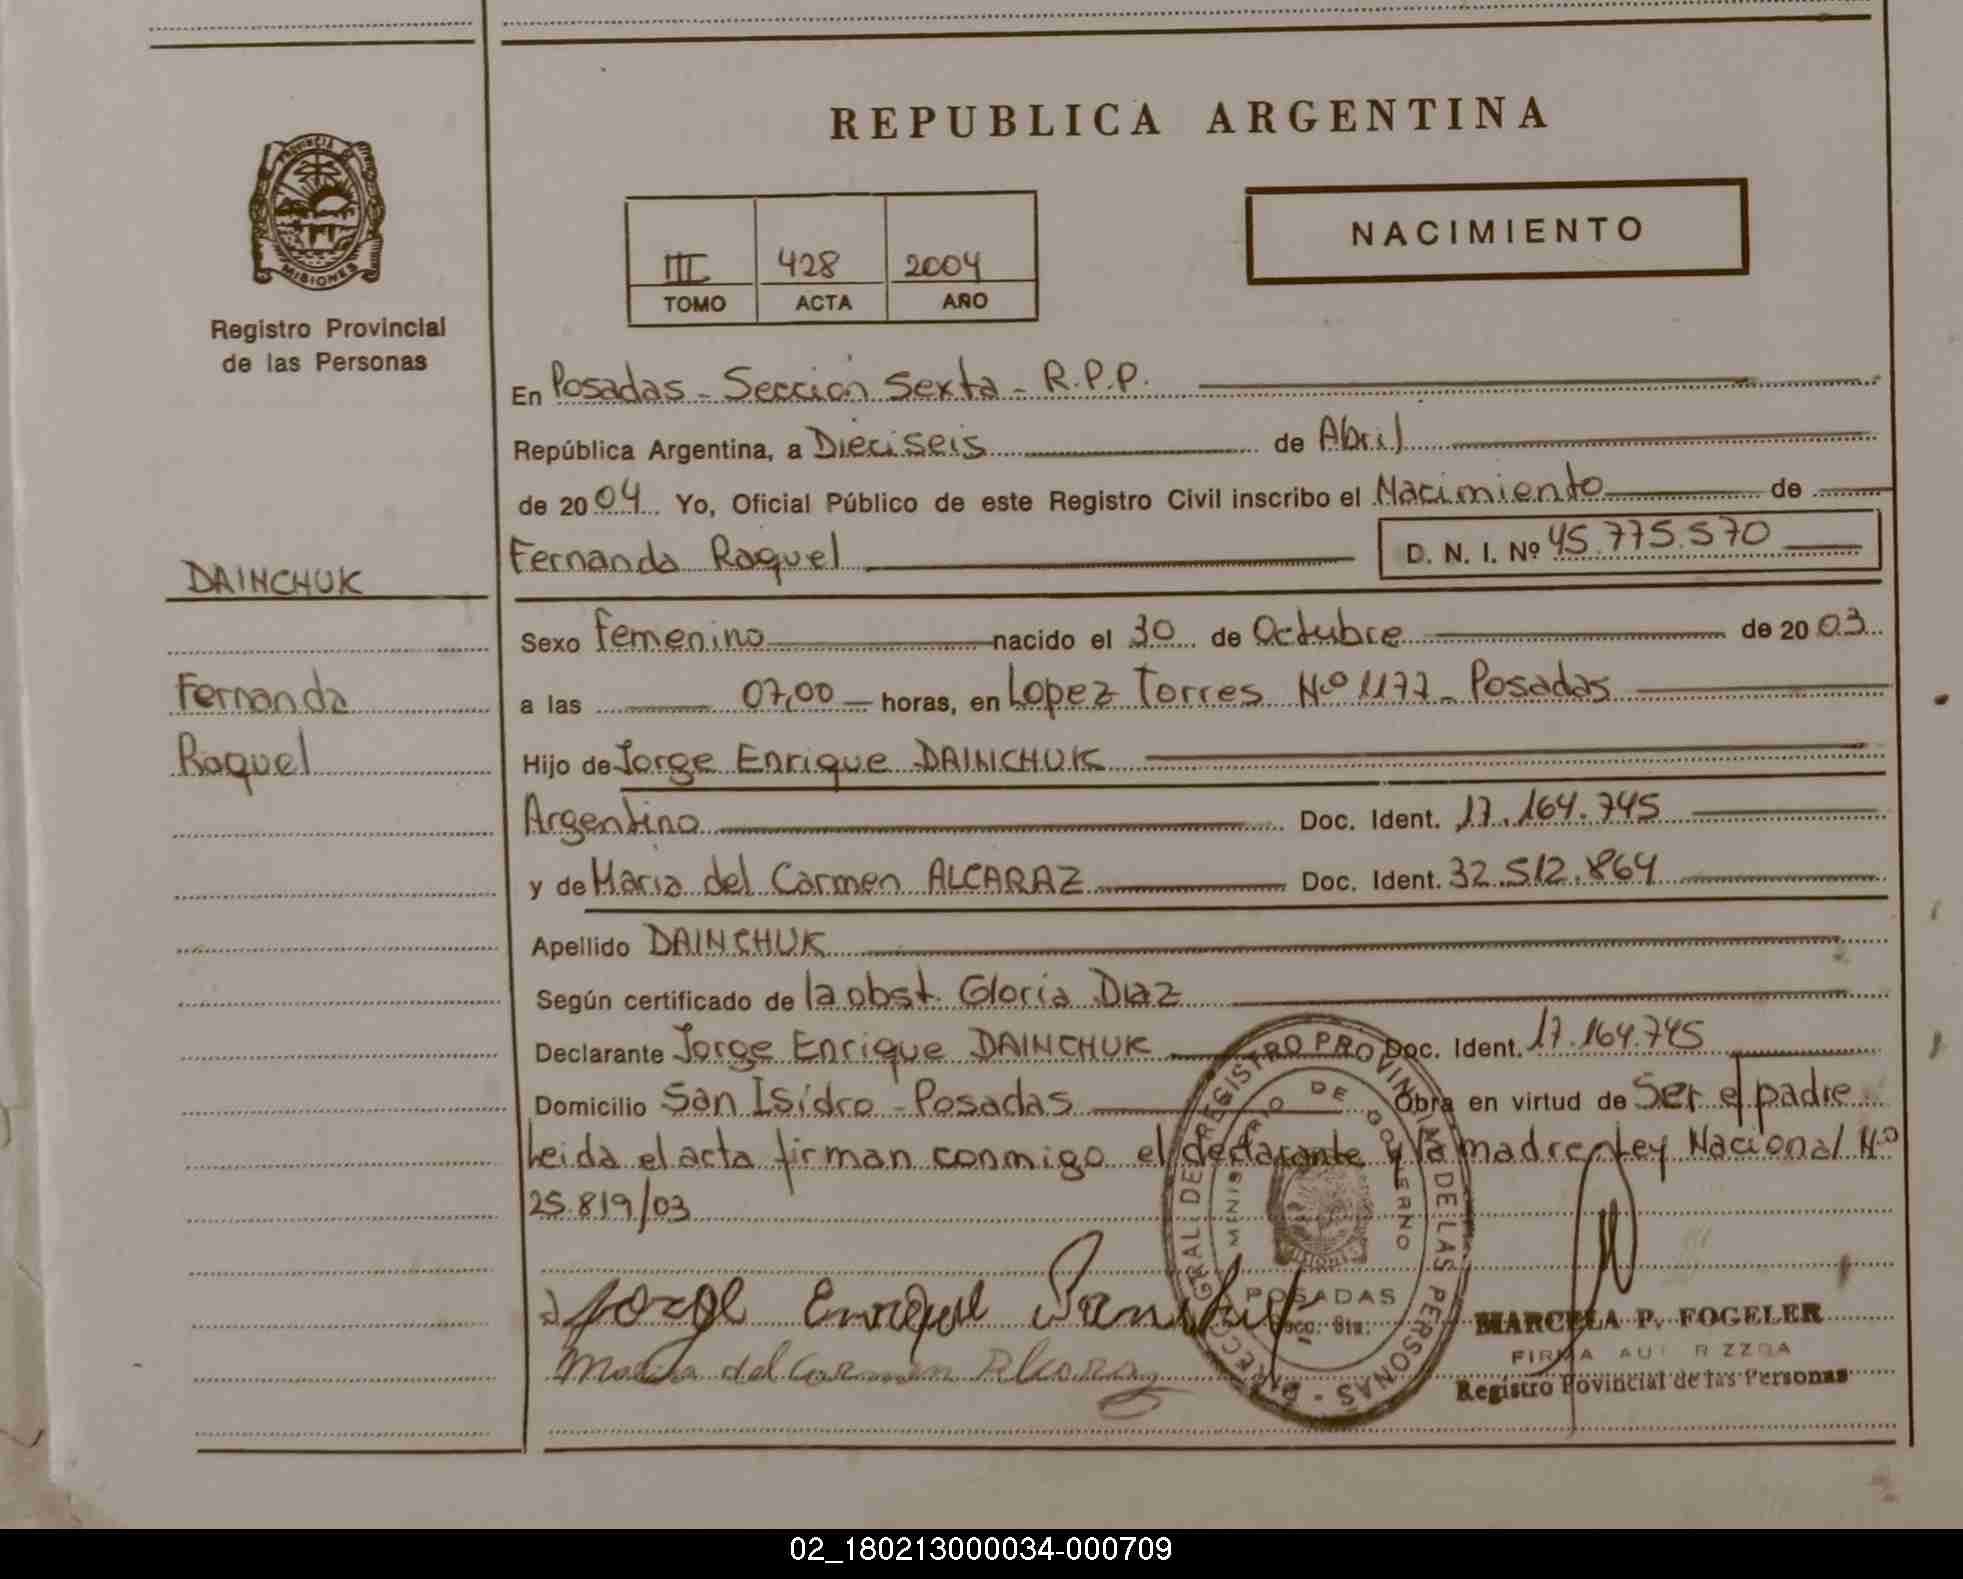 REPUBLICA ARGENTINA
PROVINCIA DE
MISIONES
Registro Provincial
de las Personas
NACIMIENTO
III 428 2004
TOMO ACTA AÑO
En Posadas - Sección Sexta - R.P.P.
República Argentina, a Dieciseis de Abril
de 2004. Yo, Oficial Público de este Registro Civil inscribo el Nacimiento de
Fernanda Raquel D. N. I. Nº 45.775.570
DAINCHUK
Fernanda
Raquel
Sexo Femenino nacido el 30 de Octubre de 2003
a las 07,00 horas, en Lopez Torres Nº 1177 - Posadas
Hijo de Jorge Enrique DAINCHUK
Argentino Doc. Ident. 17.164.745
y de Maria del Carmen ALCARAZ Doc. Ident. 32.512.864
Apellido DAINCHUK
Según certificado de la obst. Gloria Diaz
Declarante Jorge Enrique DAINCHUK Doc. Ident. 17.164.745
Domicilio San Isidro - Posadas Obra en virtud de Ser el padre
Leida el acta firman conmigo el declarante y la madre Ley Nacional Nº
25.819/03
Jorge Enrique
Maria del Carmen Alcaraz
REGISTRO PROVINCIAL DE LAS PERSONAS
MINISTERIO DE GOBIERNO
POSADAS
MARCELA P. FOGELER
FIRMA AUTORIZZDA
Registro Povincial de las Personas
02_180213000034-000709